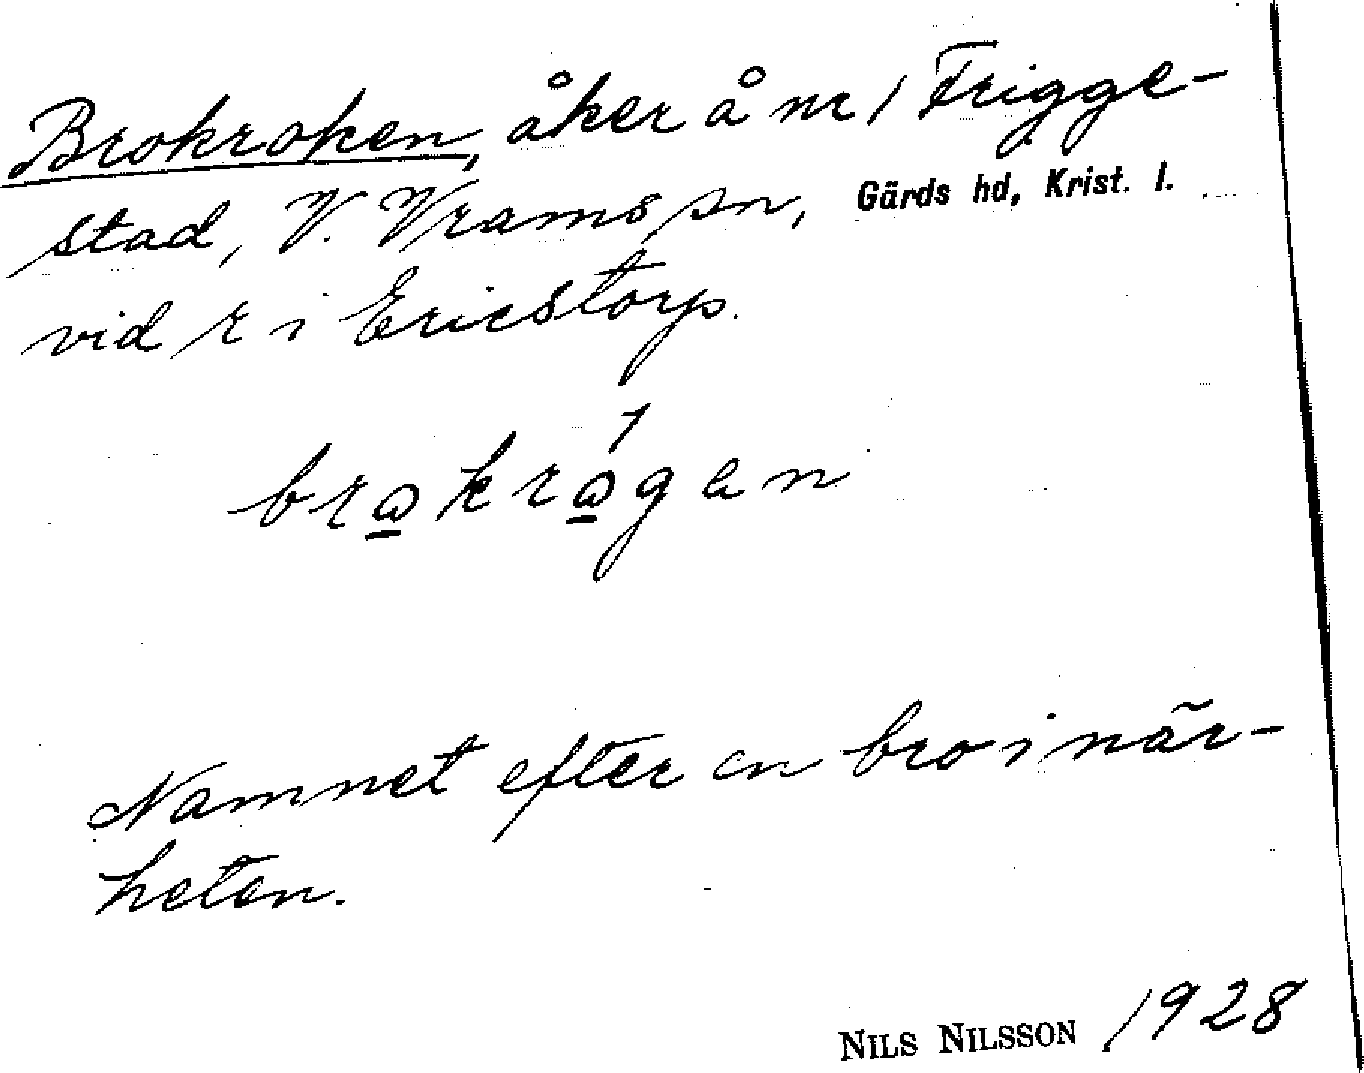 Brokroken, åker å nr 1 Frigge-
stad, V. Vrams sn, Gärds hd, Krist. l.
vid r i Ericstorp.
brωkrωgan
Namnet efter en bro i när-
heten.
NILS NILSSON 1928